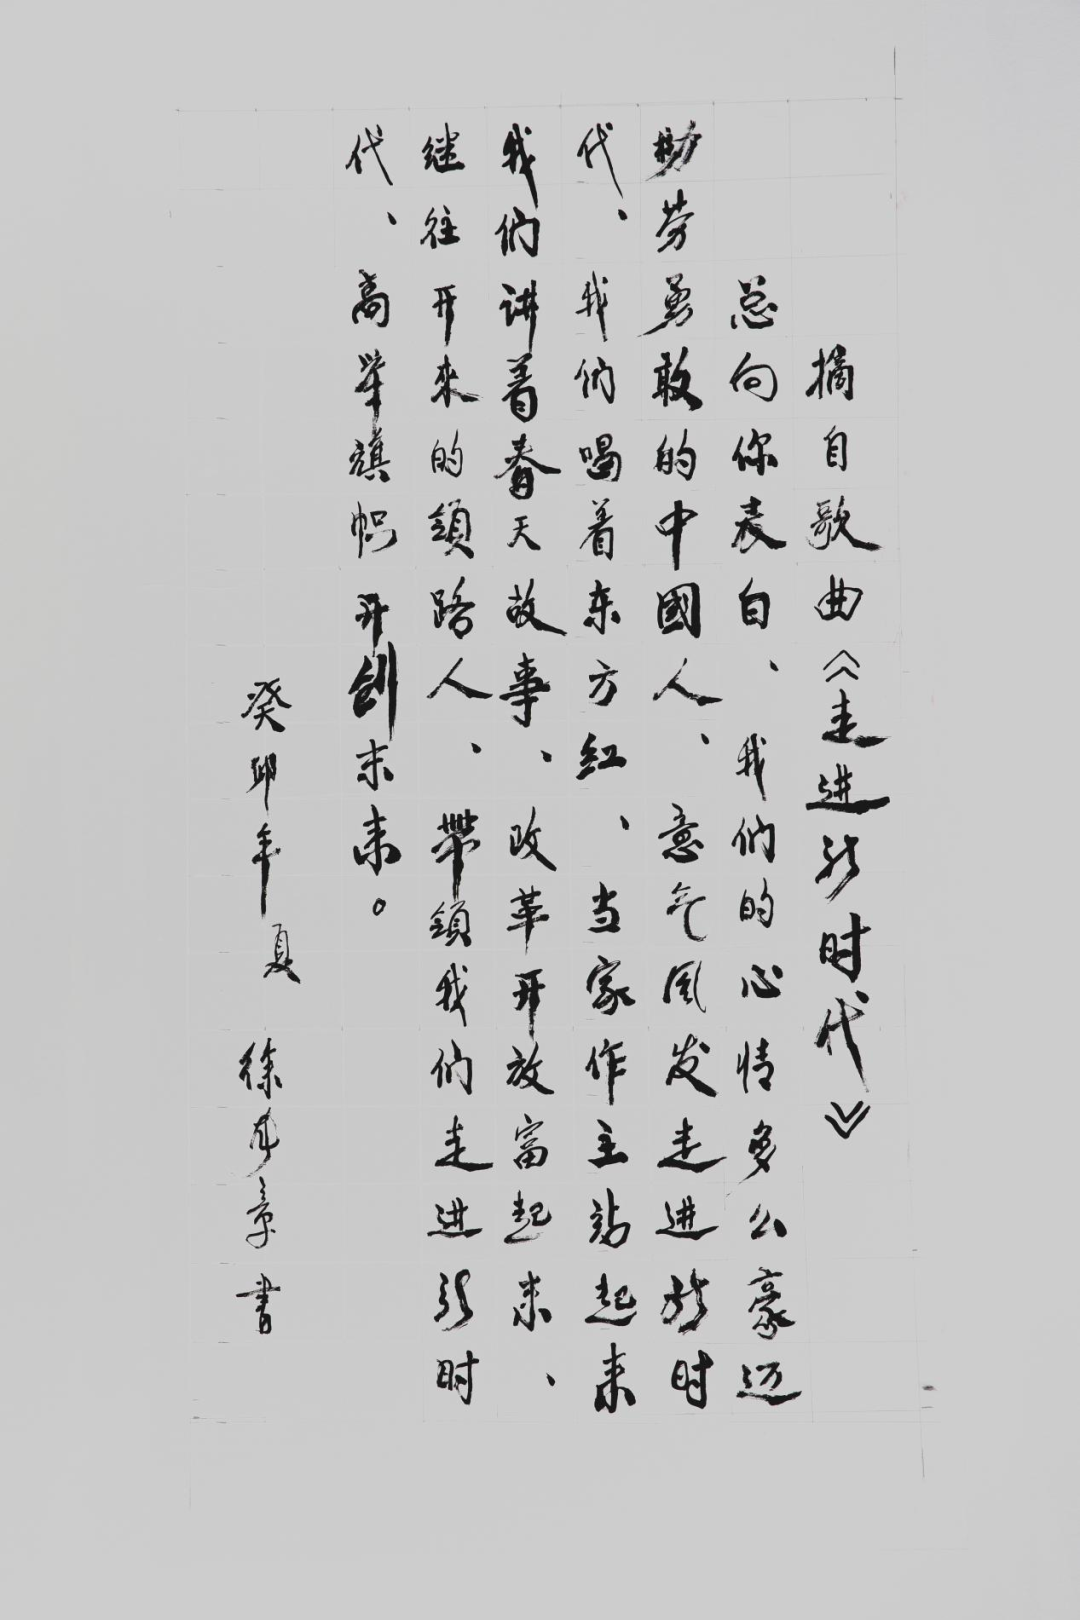 摘自歌曲《走进新时代》
总向你表白、我们的心情多么豪迈
勤劳勇敢的中國人、意气风发走进新时
代、我们唱着东方红、当家作主站起来
我们讲着春天故事、改革开放富起来、
继往开來的領路人、帶領我们走进新时
代、高举旗帜开創未来。
癸卯年夏 徐章書